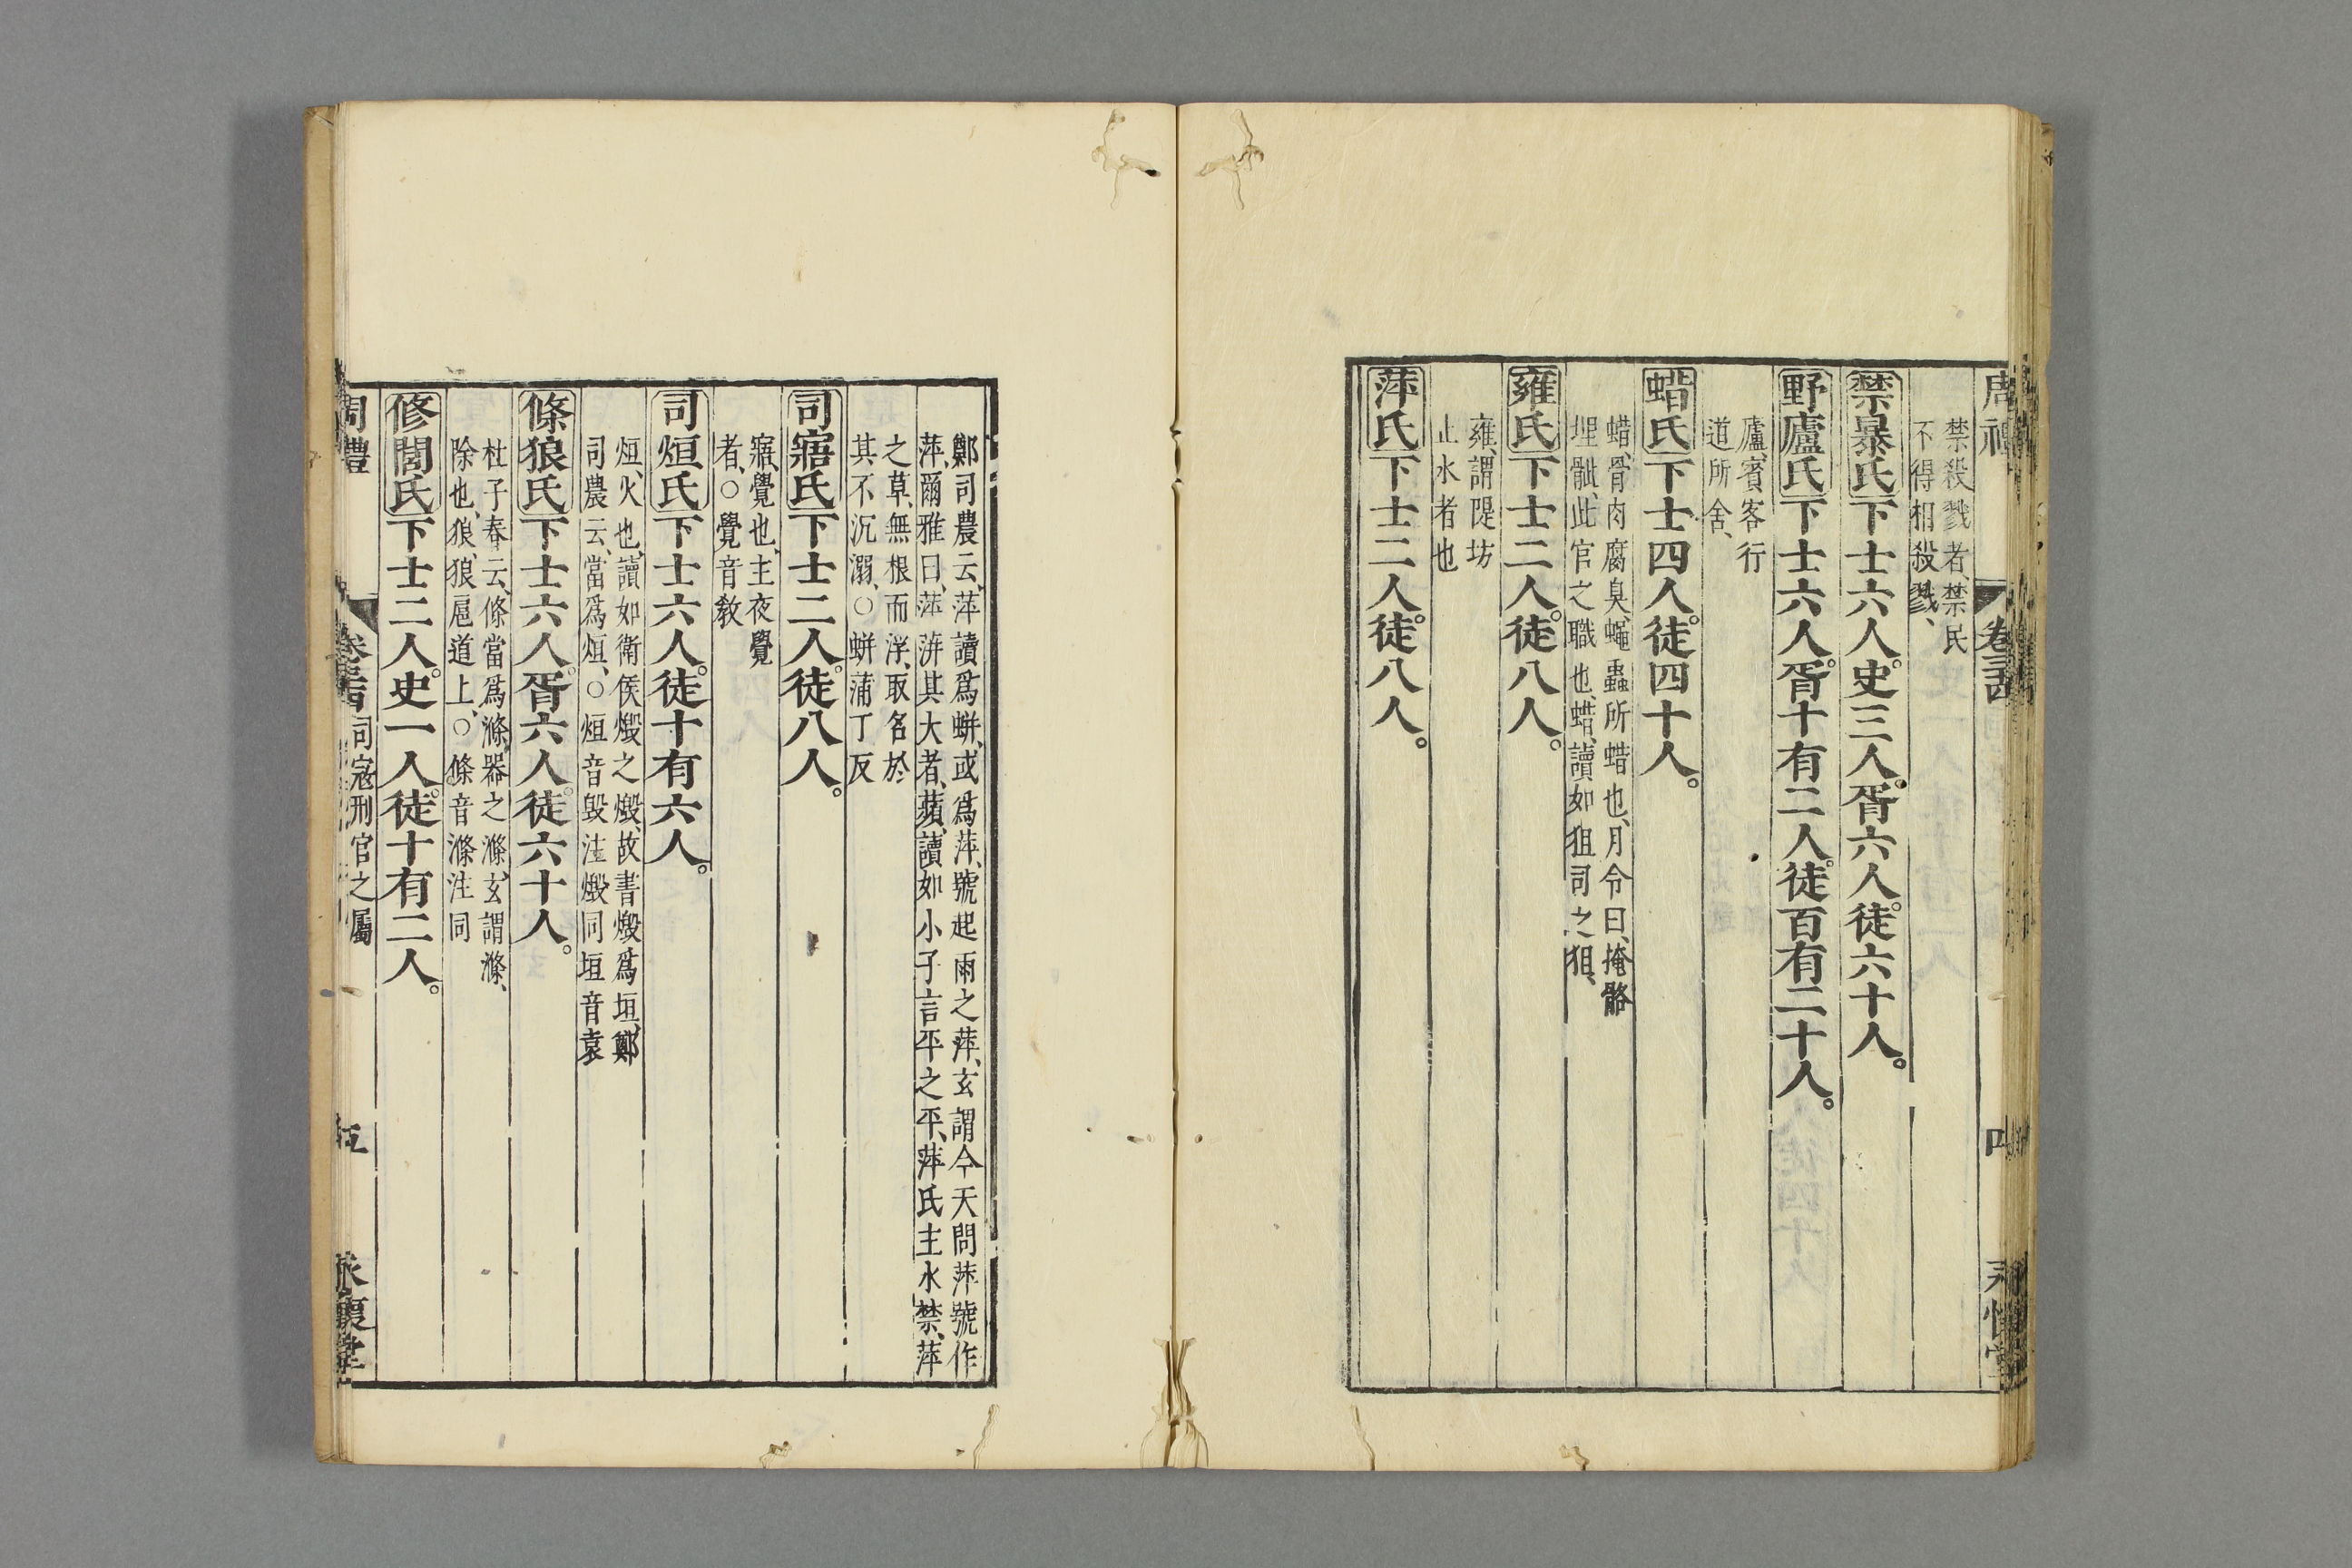 周禮 卷三四 四 永懷堂
禁殺戮者、禁民
不得相殺戮、
禁暴氏下士六人。史三人。胥六人。徒六十人。
野廬氏下士六人。胥十有二人。徒百有二十人。
廬、賓客行
道所舍、
蜡氏下士四人。徒四十人。
蜡、骨肉腐臭、蠅蟲所蜡也、月令曰、掩骼
埋骴、此官之職也、蜡、讀如狙司之狙、
雍氏下士二人。徒八人。
雍、謂隄坊
止水者也
萍氏下士二人。徒八人。
鄭司農云、萍讀爲蛢、或爲萍、號起雨之萍、玄謂今天問萍號作
萍、爾雅曰、萍蓱其大者、蘋、讀如小子言平之平、萍氏主水禁、萍
之草、無根而浮、取名於
其不沉溺、○蛢蒲丁反
司寤氏下士二人。徒八人。
寤、覺也、主夜覺
者、○覺音教
司烜氏下士六人。徒十有六人。
烜、火也、讀如衛侯燬之燬、故書燬爲垣、鄭
司農云、當爲烜、○烜音毁注燬同垣音袁
條狼氏下士六人。胥六人。徒六十人。
杜子春云、條當爲滌、器之滌、玄謂滌、
除也、狼、狼扈道上、○條音滌注同
修閭氏下士二人。史一人。徒十有二人。
周禮 司寇刑官之屬 五 永懷堂